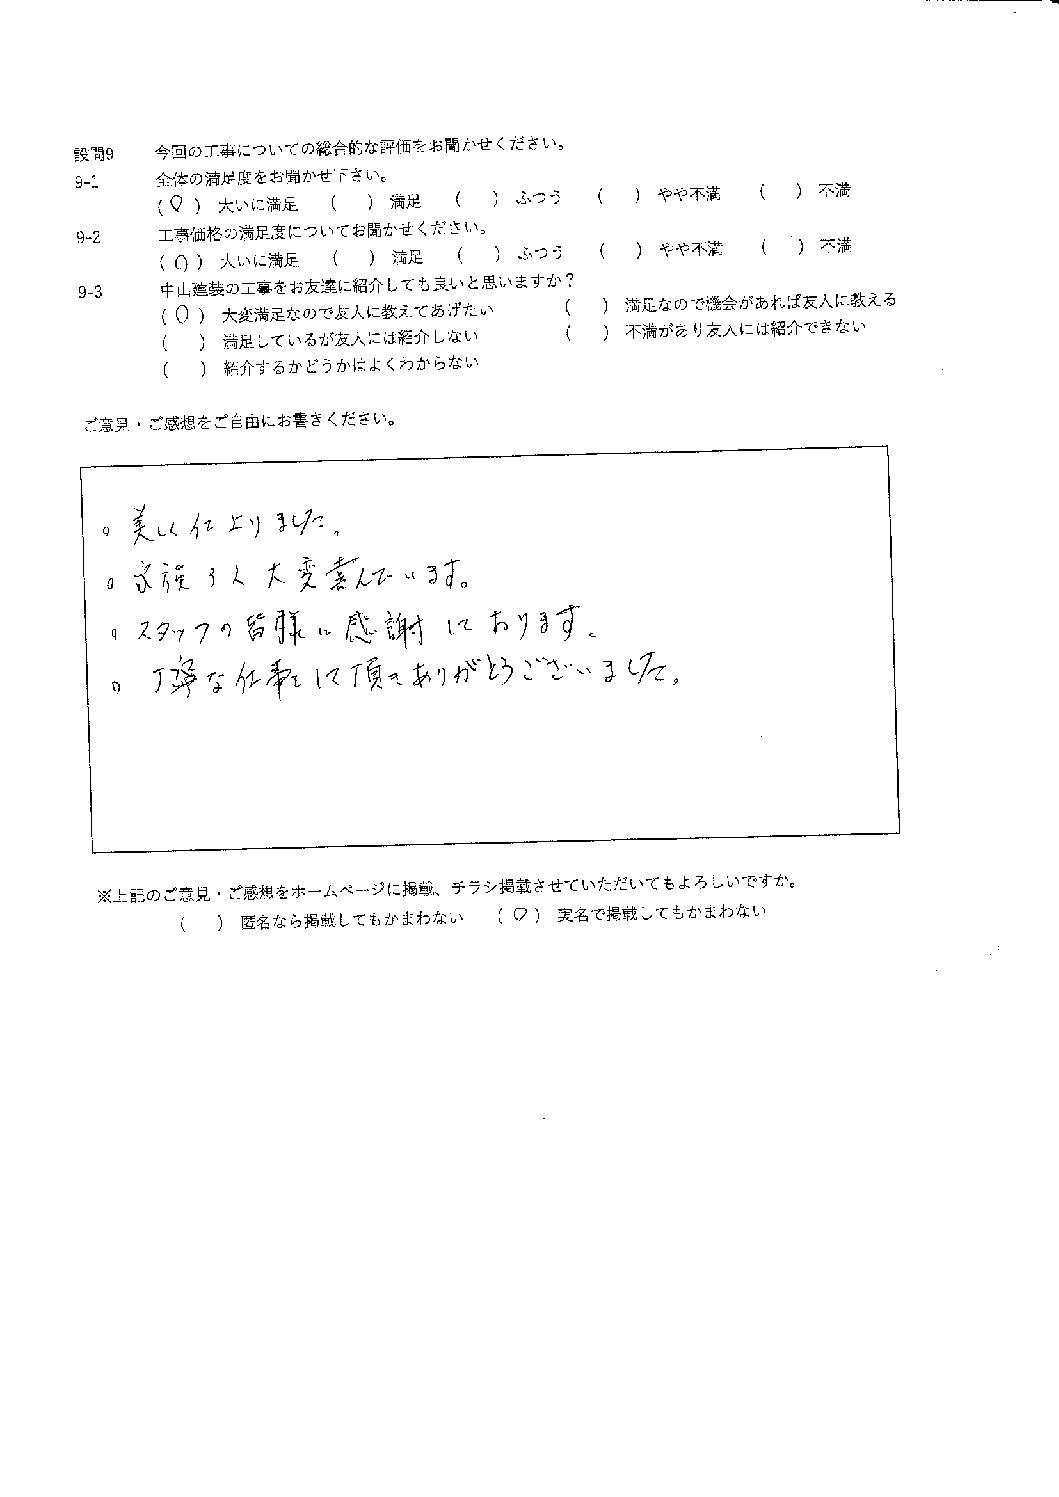 設問9 今回の工事についての総合的な評価をお聞かせください。
9-1 全体の満足度をお聞かせ下さい。
(○) 大いに満足 ( ) 満足 ( ) ふつう ( ) やや不満 ( ) 不満
9-2 工事価格の満足度についてお聞かせください。
(○) 大いに満足 ( ) 満足 ( ) ふつう ( ) やや不満 ( ) 不満
9-3 中山建装の工事をお友達に紹介しても良いと思いますか?
(○) 大変満足なので友人に教えてあげたい ( ) 満足なので機会があれば友人に教える
( ) 満足しているが友人には紹介しない ( ) 不満があり友人には紹介できない
( ) 紹介するかどうかはよくわからない
ご意見・ご感想をご自由にお書きください。
。美しく仕上りました。
。家族3人大変喜んでいます。
。スタッフの皆様に感謝しております。
。丁寧な仕事をして頂きありがとうございました。
※上記のご意見・ご感想をホームページに掲載、チラシ掲載させていただいてもよろしいですか。
( ) 匿名なら掲載してもかまわない (○) 実名で掲載してもかまわない